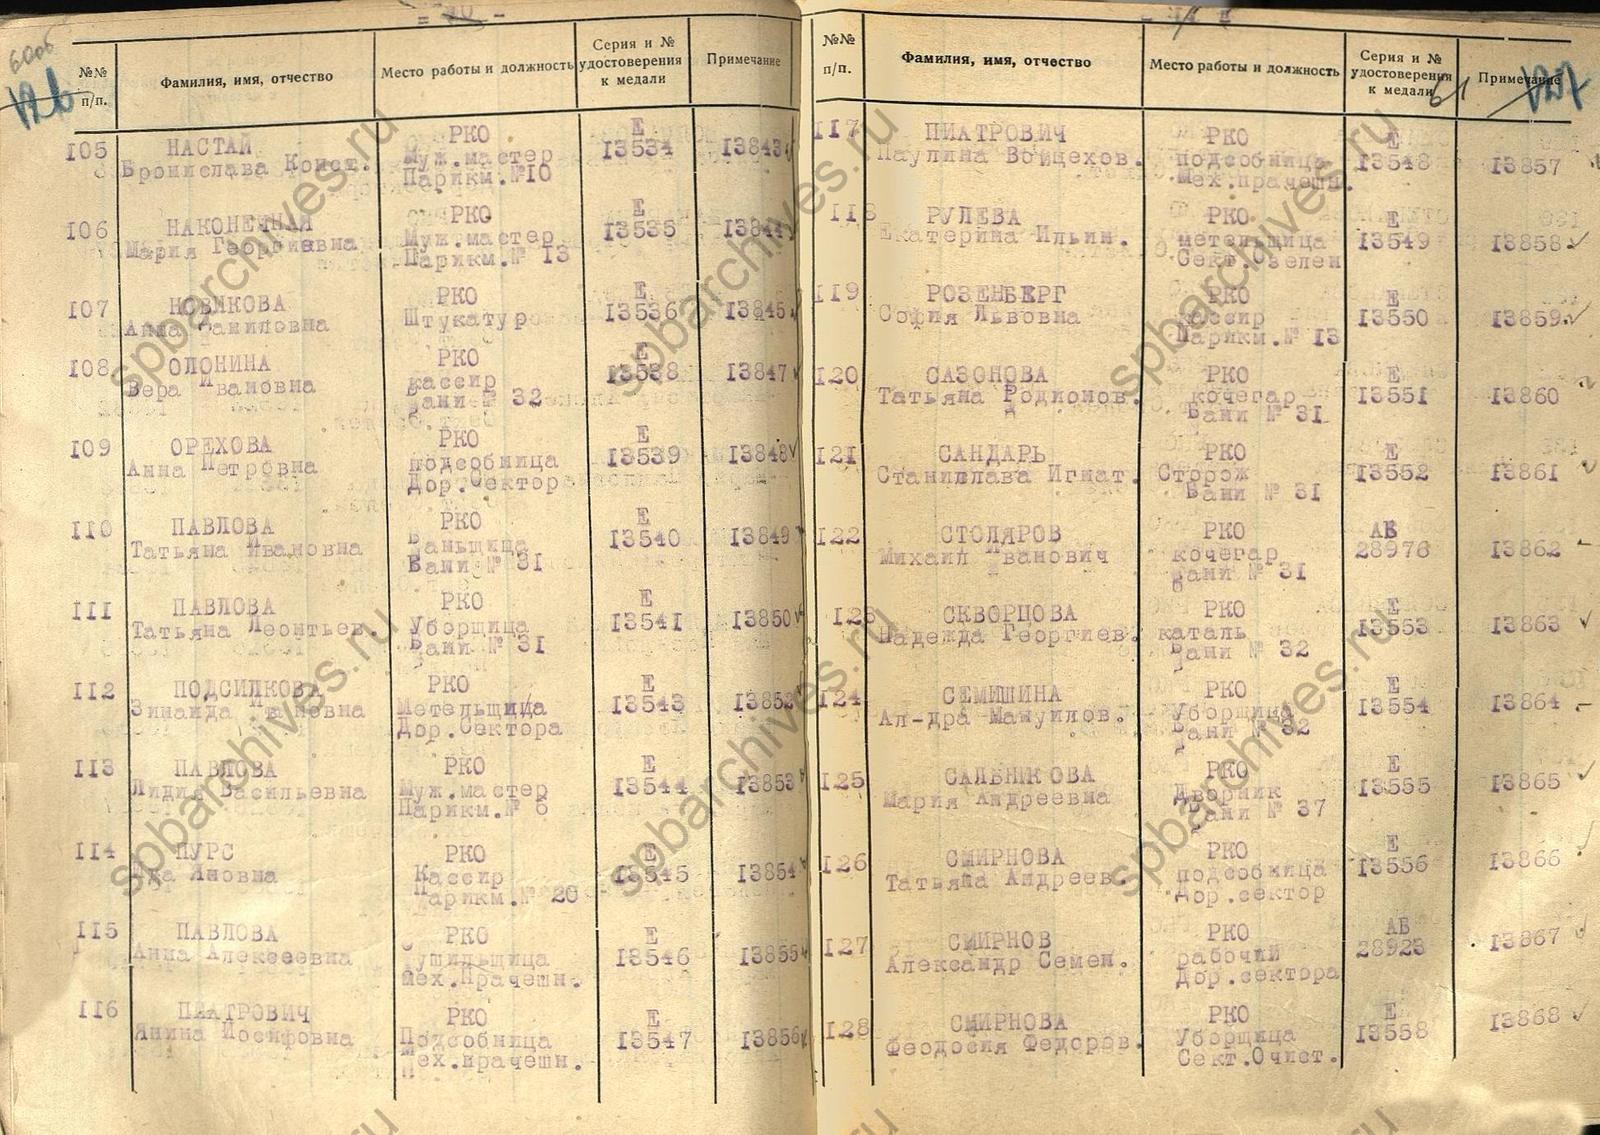 = 40 -
№№ п/п.
Фамилия, имя, отчество
Место работы и должность
Серия и № удостоверения к медали
Примечание
105 НАСТАЙ РКО Е
Бронислава Конст. Муж.мастер 13534 13843
Парикм.№10
106 НАКОНЕЧНАЯ РКО Е
Мария Георгиевна Муж.мастер 13535 13844
Парикм.№ 13
107 НОВИКОВА РКО Е
Анна Даниловна Штукатур 13536 13845
108 ОЛОНИНА РКО Е
Вера Ивановна кассир 13538 13847
Бани № 32
109 ОРЕХОВА РКО Е
Анна Петровна подсобница 13539 13848
Дор.Сектор
110 ПАВЛОВА РКО Е
Татьяна Ивановна Баньщица 13540 13849
Бани № 31
111 ПАВЛОВА РКО Е
Татьяна Леонтьев. Уборщица 13541 13850
Бани № 31
112 ПОДСИЛКОВА РКО Е
Зинаида Ивановна Метельщица 13543 13852
Дор.Сектора
113 ПАВЛОВА РКО Е
Лидия Васильевна Муж.мастер 13544 13853
Парикм.№ 6
114 ПУРС РКО Е
Яновна Кассир 13545 13854
Парикм.№ 20
115 ПАВЛОВА РКО Е
Анна Алексеевна Сушильщица 13546 13855
Мех.Прачешн.
116 ПИАТРОВИЧ РКО Е
Янина Иосифовна Подсобница 13547 13856
Мех.прачешн.
№№ п/п.
Фамилия, имя, отчество
Место работы и должность
Серия и № удостоверения к медали
Примечание
61
117 ПИАТРОВИЧ РКО Е
Паулина Войцехов. подсобница 13548 13857
Мех.прачешн.
118 РУЛЕВА РКО Е
Екатерина Ильин. метельщица 13549 13858
Сект.Озелен
119 РОЗЕНБЕРГ РКО Е
София Львовна Кассир 13550 13859
Парикм.№ 13
120 САЗОНОВА РКО Е
Татьяна Родионов. кочегар 13551 13860
Бани № 31
121 САНДАРЬ РКО Е
Станислава Игнат. Сторож 13552 13861
Бани № 31
122 СТОЛЯРОВ РКО АБ
Михаил Иванович кочегар 28976 13862
Бани № 31
123 СКВОРЦОВА РКО Е
Надежда Георгиев. каталь 13553 13863
Бани № 32
124 СЕМИШИНА РКО Е
Ал-дра Мануилов. Уборщица 13554 13864
Бани № 32
125 САЛЬНИКОВА РКО Е
Мария Андреевна Дворник 13555 13865
Бани № 37
126 СМИРНОВА РКО Е
Татьяна Андреев. подсобница 13556 13866
Дор.сектор
127 СМИРНОВ РКО АБ
Александр Семен. рабочий 28923 13867
Дор.сектора
128 СМИРНОВА РКО Е
Феодосия Федоров. Уборщица 13558 13868
Сект.Очист.
spbarchives.ru